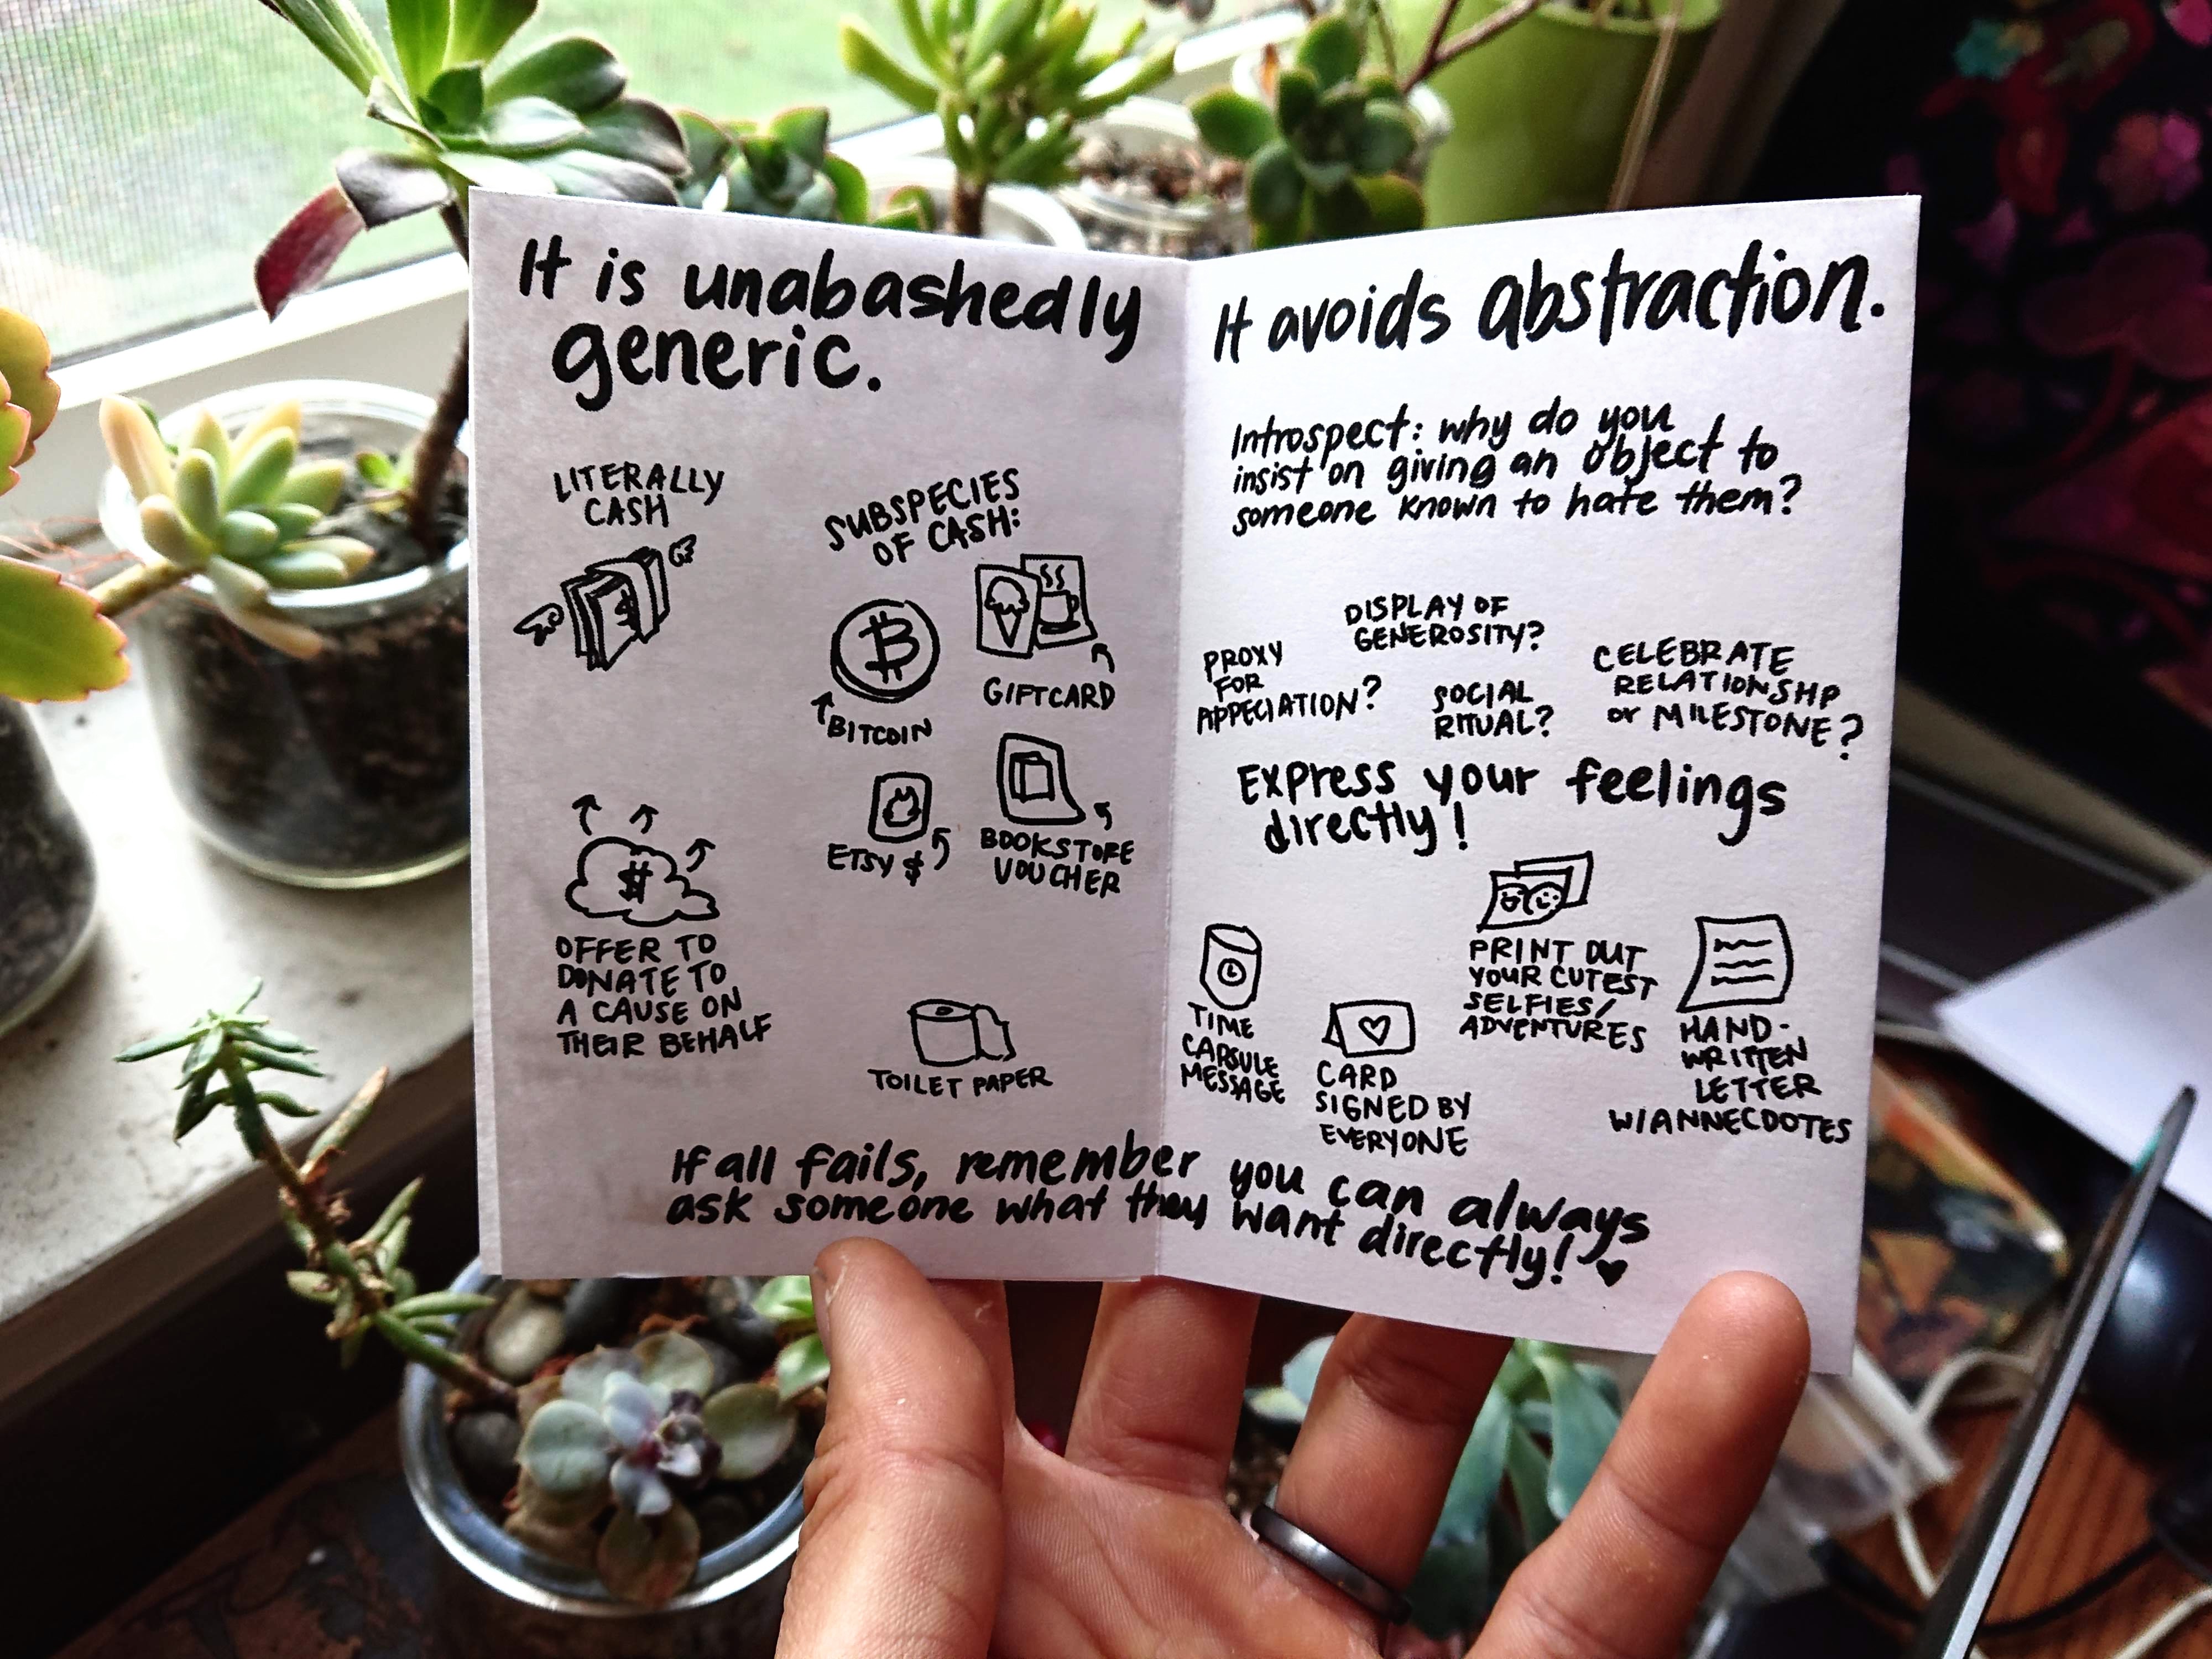 It is unabashedly
generic.
LITERALLY
CASH
SUBSPECIES
OF CASH:
BITCOIN
GIFTCARD
ETSY $
BOOKSTORE
VOUCHER
OFFER TO
DONATE TO
A CAUSE ON
THEIR BEHALF
TOILET PAPER
It avoids abstraction.
Introspect: why do you
insist on giving an object to
someone known to hate them?
PROXY
FOR
APPECIATION?
DISPLAY OF
GENEROSITY?
SOCIAL
RITUAL?
CELEBRATE
RELATIONSHP
or MILESTONE?
Express your feelings
directly!
TIME
CAPSULE
MESSAGE
CARD
SIGNED BY
EVERYONE
PRINT OUT
YOUR CUTEST
SELFIES/
ADVENTURES
HAND-
WRITTEN
LETTER
W/ANNECDOTES
If all fails, remember you can always
ask someone what they want directly! ♥